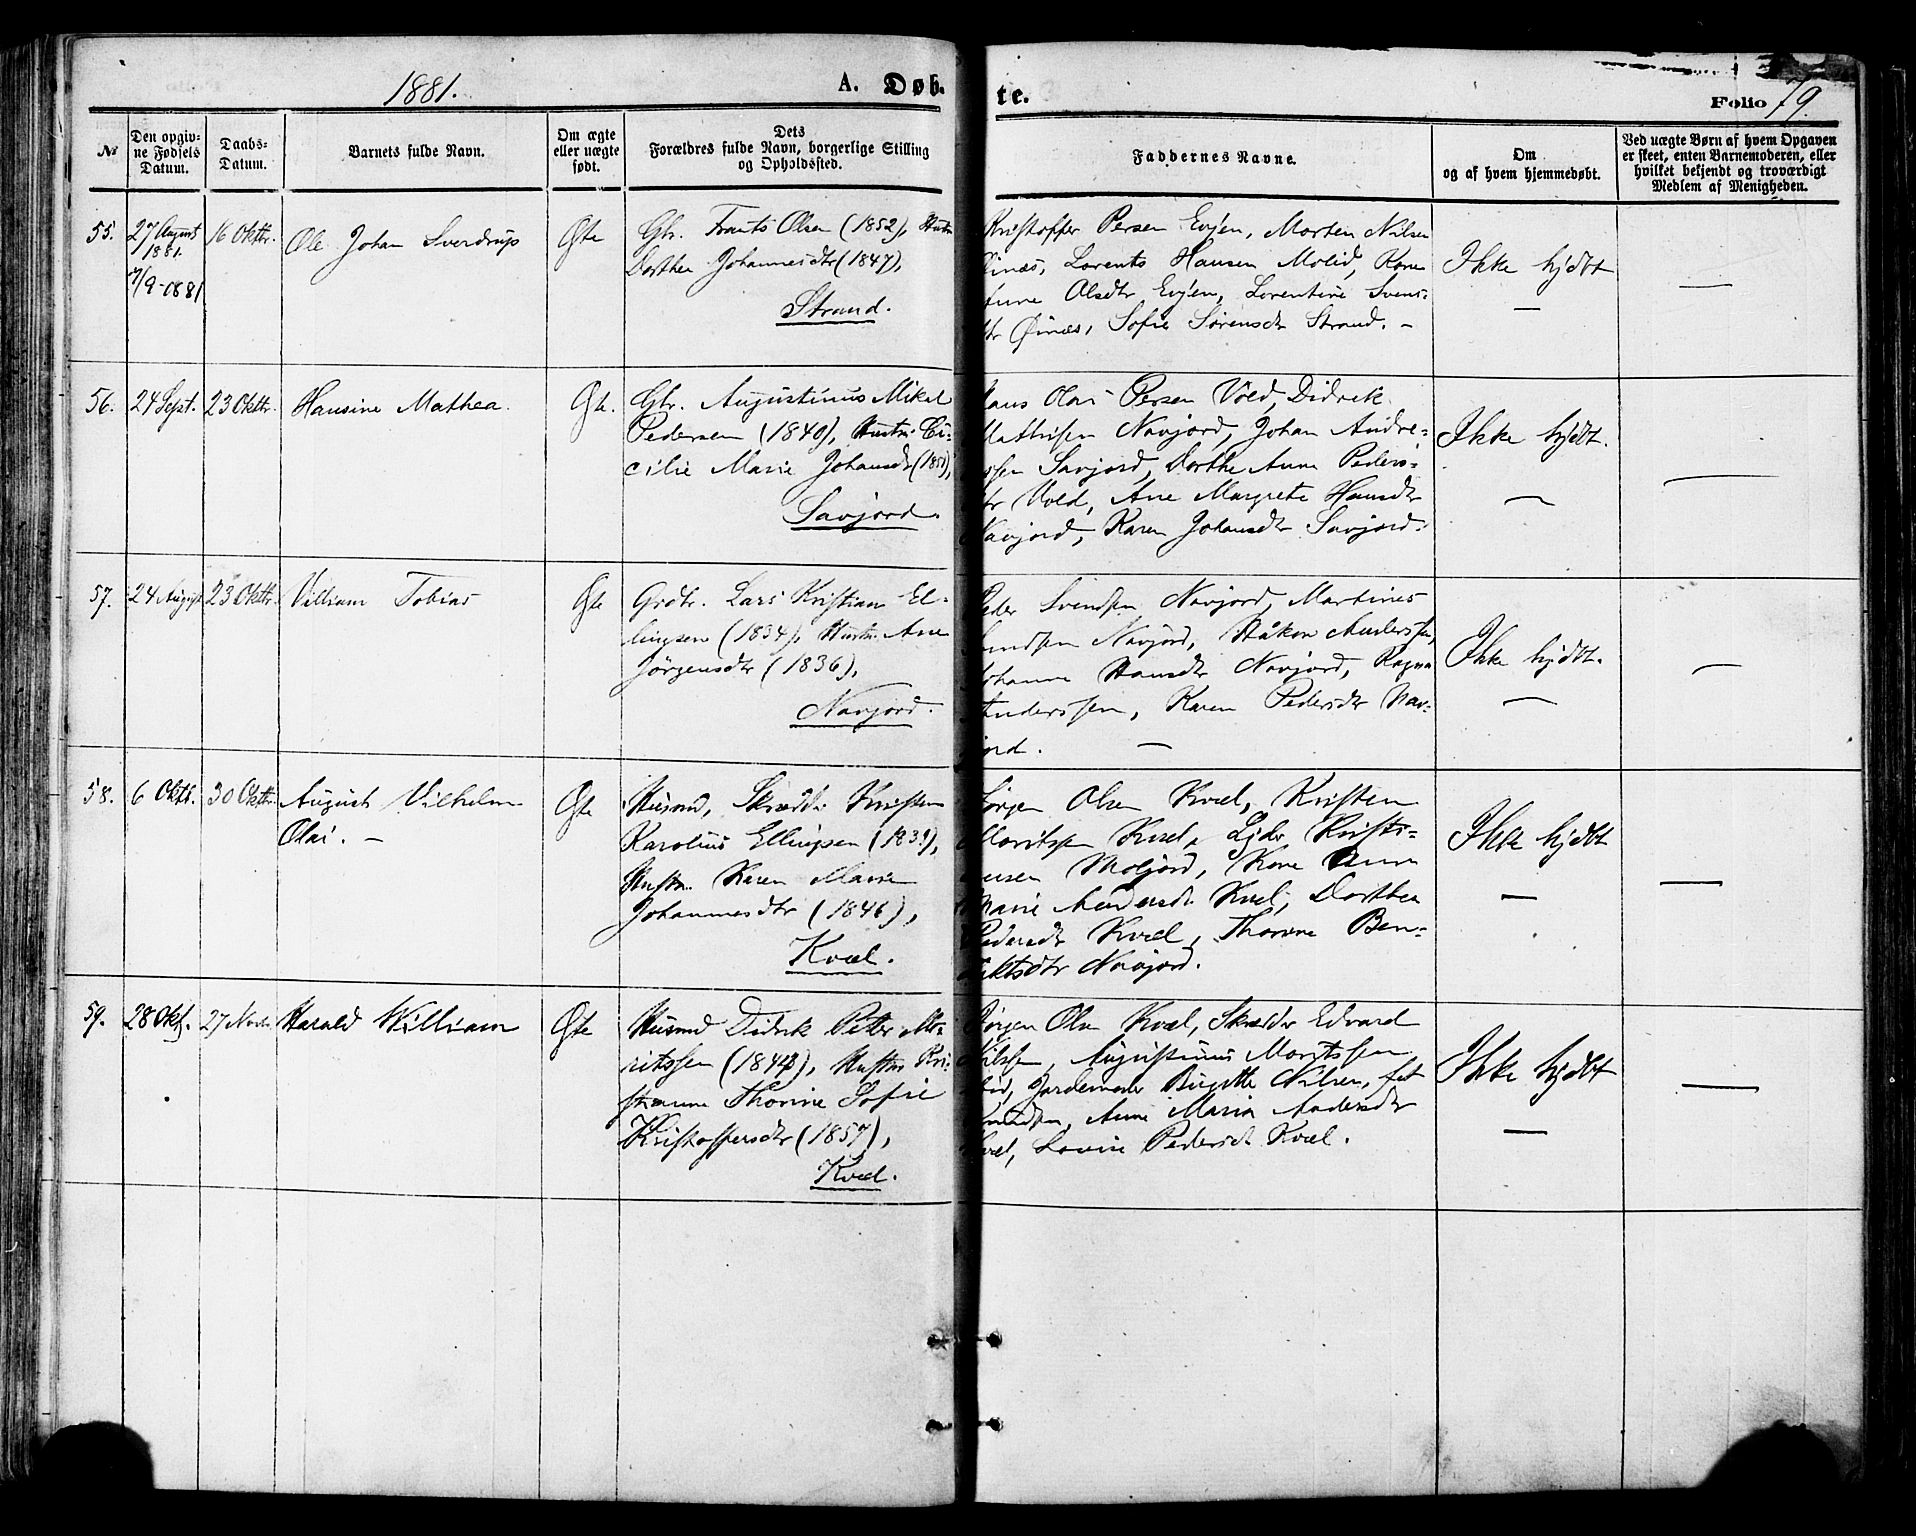 1881.
A. Døb-
te.
Folio 79.
№
Den opgiv-
ne Fødsels
Datum.
Daabs-
Datum.
Barnets fulde Navn.
Om ægte
eller uægte
født.
Dets
Forældres fulde Navn, borgerlige Stilling
og Opholdssted.
Faddernes Navne.
Om
og af hvem hjemmedøbt.
Ved uægte Børn af hvem Opgaven
er skeet, enten Barnemoderen, eller
hvilket bekjendt og troværdigt
Medlem af Menigheden.
55.
27 August
1881.
16 Oktbr.
Ole Johan Sverdrup
Ægte
Gbr. Frants Olsen (1852), Hustru
Dorthea Johannesdtr (1847),
Strand.
Kristoffer Persen Evjen, Morten Nilsen
Øinæs, Lorents Hansen Molid, Kone
Olsdtr Evjen, Lorentine Svens-
dtr Øinæs, Sofie Sørensdtr Strand. –
Ikke hjdbt
—
—
56.
24 Sept.
23 Oktbr.
Hansine Mathea.
Ægte.
Gbr. Augustinus Mikal
Pedersen (1840), Hustru Ce-
cilie Marie Johansdtr
Savjord.
Hans Olai Persen Vold, Didrik
Mathisen Navjord, Johan Andre-
ssen Savjord, Dorthe Anne Peders-
dtr Vold, Ane Margrete Hansdtr
Navjord, Karen Johansdtr Savjord.
Ikke hjdbt.
—
—
57.
24 August
23 Oktbr.
Villiam Tobias
Ægte
Grdbr. Lars Kristian El-
lingsen (1834), Hustru Ane
Jörgensdtr (1836),
Navjord.
Peder Svendsen Navjord, Martines
Navjord, Håkon Anderssen,
Johanna Hansdtr Navjord, Ragna
Anderssen, Karen Pedersdtr Nav-
jord. —
Ikke hjdbt.
—
—
58.
6 Oktb.
30 Oktbr.
August Vilhelm
Olai. –
Ægte
Husmd, Skrædder Kristen
Karolius Ellingsen
Hustru Karen Marie
Johannesdtr (1846),
Kvæl.
Jörgen Olsen Kvæl, Kristen
Moritssen Kvæl, Ejder Kristi-
ansen Moljord, Kone Anne
Marie Andersdtr Kvæl, Dorthea
Pedersdtr Kvæl, Thorine Ben-
diktsdtr Navjord.
Ikke hjdbt
—
—
59.
28 Okt.
27 Novbr.
Harald William
Ægte
Husmd Didrik Petter Mo-
ritssen Hustru Kri-
stianne Thorine Sofie
Kristoffersdtr (1857),
Kvæl.
Jörgen Olsen Kvæl, Skrædder Edvard
Nilssen, Augustinus Moritssen
Jordemoder Birgitte Nilsen,
Anne Maria Andersdtr
Kvæl, Lovise Pedersdtr Kvæl.
Ikke hjdbt
—
—